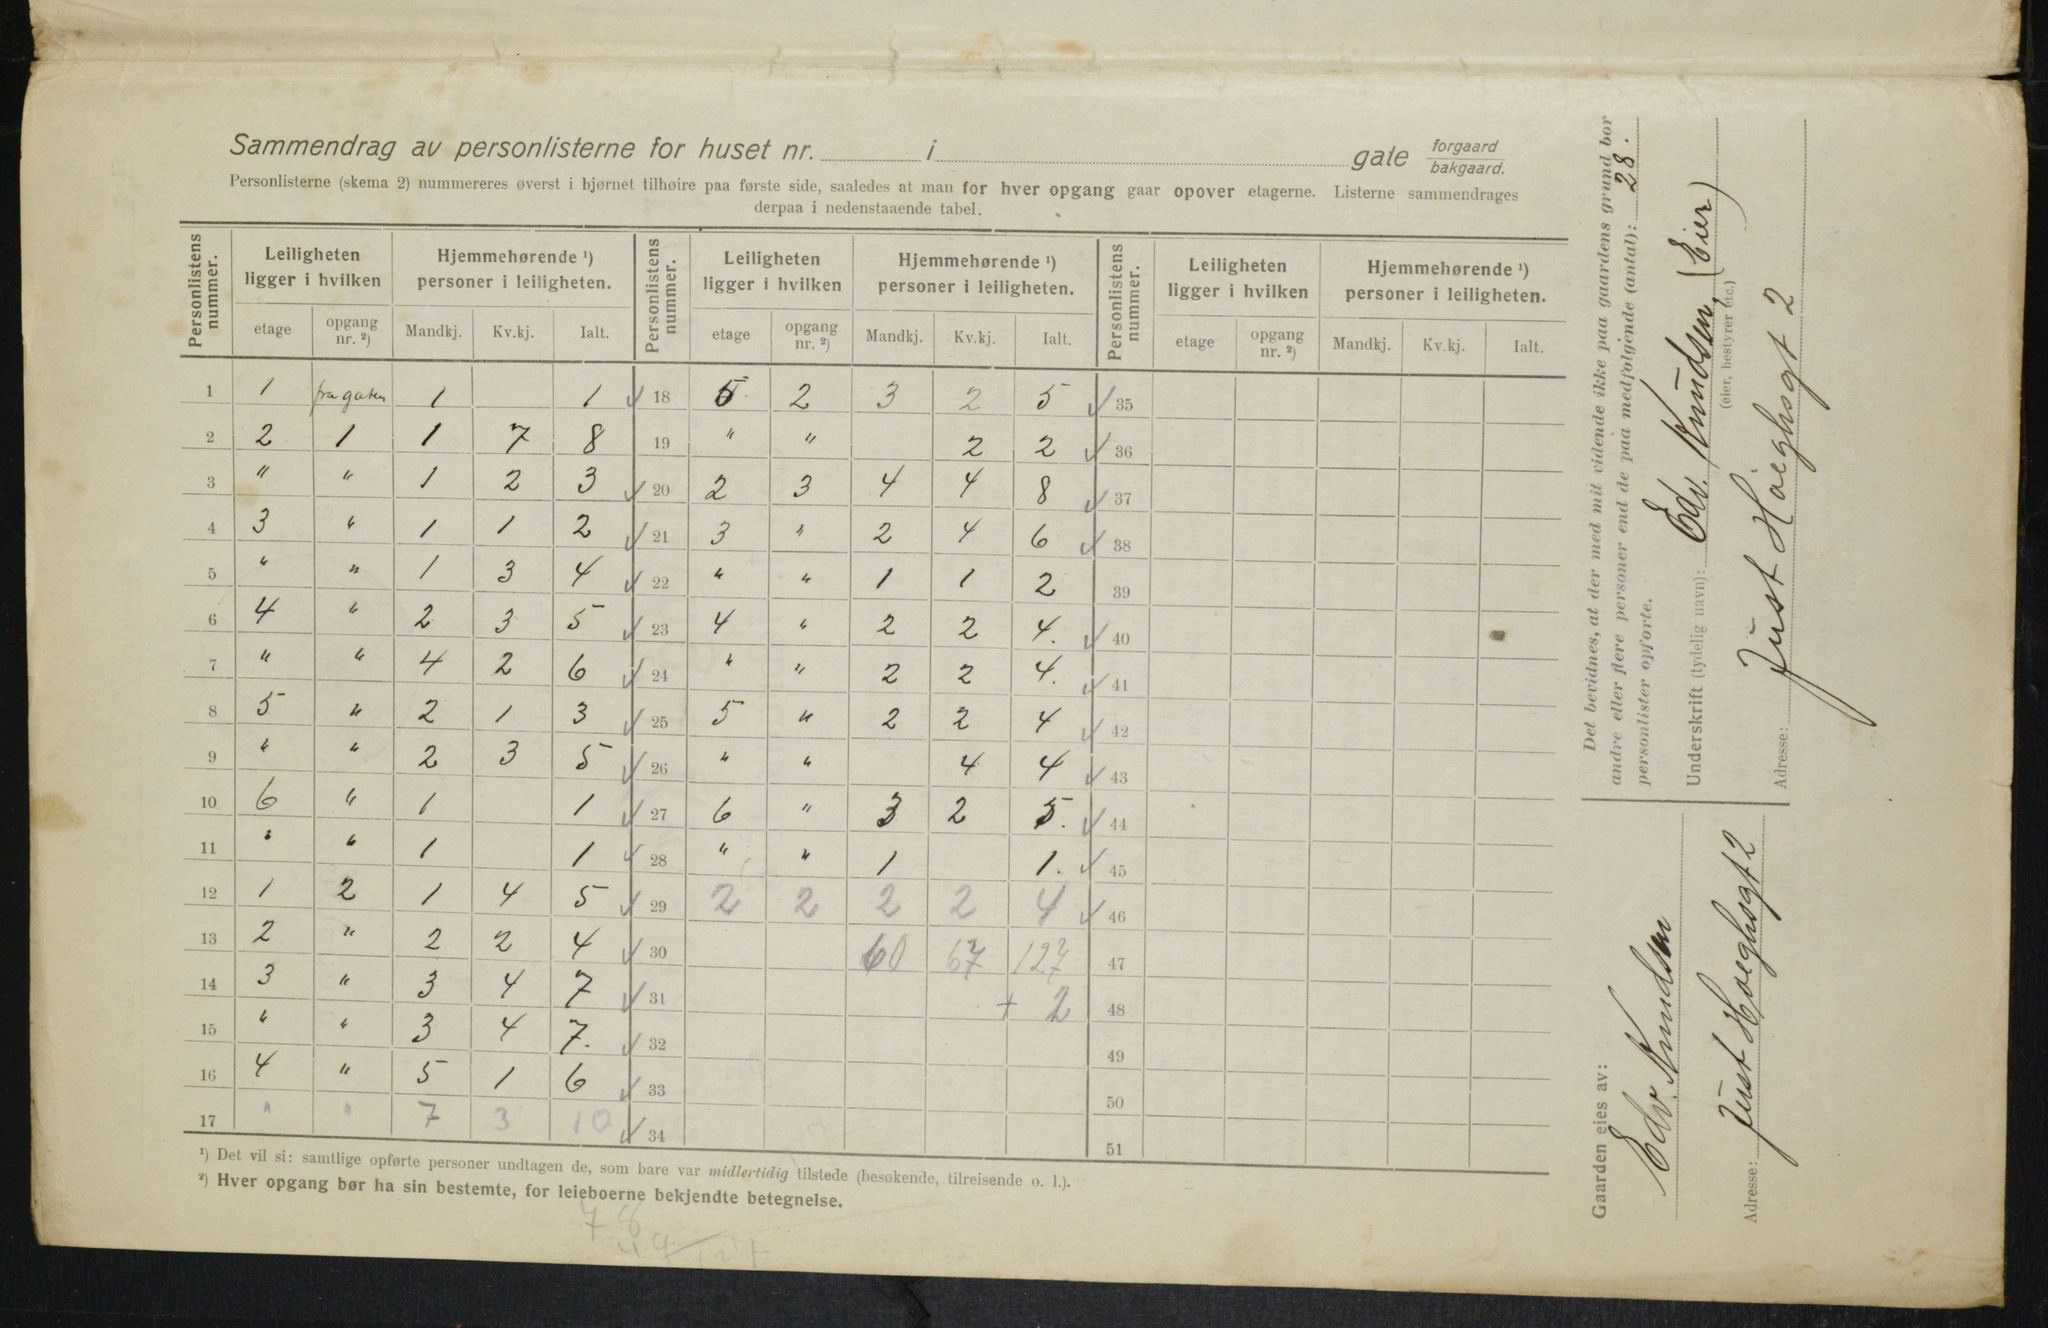 Sammendrag av personlisterne for huset nr. i gate forgaard bakgaard.
Personlisterne (skema 2) nummereres øverst i hjørnet tilhøire paa første side, saaledes at man for hver opgang gaar opover etagerne. Listerne sammendrages
derpaa i nedenstaaende tabel.
Personlistens nummer. Leiligheten ligger i hvilken Hjemmehørende ¹) personer i leiligheten. Personlistens nummer. Leiligheten ligger i hvilken Hjemmehørende ¹) personer i leiligheten. Personlistens nummer. Leiligheten ligger i hvilken Hjemmehørende ¹) personer i leiligheten.
etage opgang nr. ²) Mandkj. Kv.kj. Ialt. etage opgang nr. ²) Mandkj. Kv.kj. Ialt. etage opgang nr. ²) Mandkj. Kv.kj. Ialt.
1 1 fra gaten 1 1 ✓ 18 5 2 3 2 5 ✓ 35
2 2 1 1 7 8 19 " " 2 2 ✓ 36
3 " " 1 2 3 ✓ 20 2 3 4 4 8 ✓ 37
4 3 " 1 1 2 ✓ 21 3 " 2 4 6 ✓ 38
5 " " 1 3 4 ✓ 22 " " 1 1 2 39
6 4 " 2 3 5 ✓ 23 4 " 2 2 4. ✓ 40
7 " " 4 2 6 ✓ 24 " " 2 2 4. ✓ 41
8 5 " 2 1 3 ✓ 25 5 " 2 2 4 ✓ 42
9 " " 2 3 5 ✓ 26 " " 4 4 ✓ 43
10 6 " 1 1 ✓ 27 6 " 3 2 5. ✓ 44
11 " " 1 1 ✓ 28 " " 1 1. ✓ 45
12 1 2 1 4 5 ✓ 29 2 2 2 2 4 ✓ 46
13 2 " 2 2 4 ✓ 30 60 67 127 47
14 3 " 3 4 7 ✓ 31 + 2 48
15 " " 3 4 7. ✓ 32 49
16 4 " 5 1 6 ✓ 33 50
17 " " 7 3 10 ✓ 34 51
¹) Det vil si: samtlige opførte personer undtagen de, som bare var midlertidig tilstede (besøkende, tilreisende o. l.).
²) Hver opgang bør ha sin bestemte, for leieboerne bekjendte betegnelse.
78
49
Det bevidnes, at der med mit vidende ikke paa gaardens grund bor
andre eller flere personer end de paa medfølgende (antal): 28.
personlister opførte.
Underskrift (tydelig navn): Edv. Knudsen, (Eier)
(eier, bestyrer etc.)
Adresse: Just Höeghsgt 2
Gaarden eies av:
Edv. Knudsen
Adresse: Just Høeghsgt 2